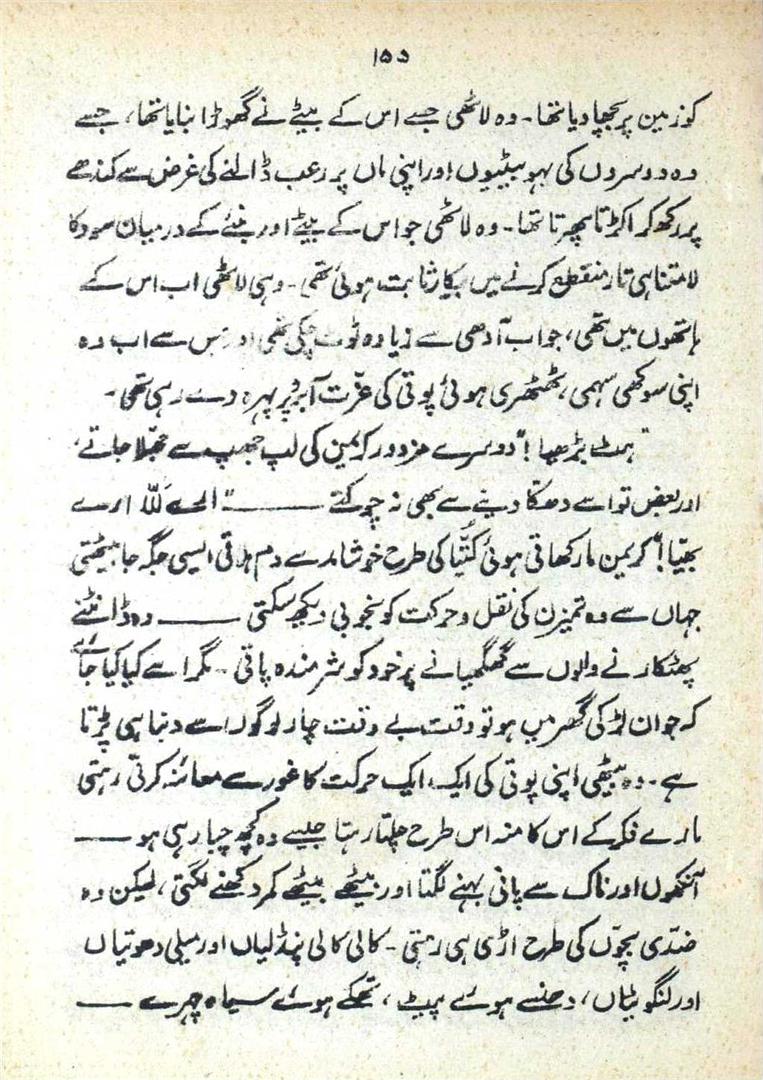 ۱۵۵
کو زمین پر بچھا دیا تھا۔ وہ لاٹھی جسے اس کے بیٹے نے گھوڑا بنایا تھا، جسے
وہ دوسروں کی بہو بیٹیوں اور اپنی ماں پر رعب ڈالنے کی غرض سے کندھے
پر رکھ کر اکڑتا پھرتا تھا۔ وہ لاٹھی جو اس کے بیٹے اور بنئے کے درمیان سود کا
لامتناہی تار منقطع کرنے میں بیکار ثابت ہوئی تھی۔ وہی لاٹھی اب اس کے
ہاتھوں میں تھی، جو اب آدھی سے زیادہ ٹوٹ چکی تھی اور جس سے اب وہ
اپنی سوکھی سہمی، ٹھٹھری ہوئی پوتی کی عزّت آبرو پر پہرہ دے رہی تھی۔
"ہٹ بڑھیا!" دوسرے مزدور کریمن کی لپ جھپ سے جھلّا جاتے،
اور بعض تو اسے دھکا دینے سے بھی نہ چوکتے ——— "الحے للّٰہ ارے
بھیّا!" کریمن مار کھاتی ہوئی کتیّا کی طرح خوشامد سے دم ہلاتی ایسی جگہ جا بیٹھتی
جہاں سے وہ تمیزن کی نقل و حرکت کو بخوبی دیکھ سکتی ——— وہ ڈانٹنے
پھٹکارنے والوں سے گھگھیانے پر خود کو شرمندہ پاتی۔ مگر اسے کیا کیا جائے
کہ جوان لڑکی گھر میں ہو تو وقت بے وقت چار لوگوں سے دبنا ہی پڑتا
ہے۔ وہ بیٹھی اپنی پوتی کی ایک ایک حرکت کا غور سے معائنہ کرتی رہتی
مارے فکر کے اس کا منہ اس طرح چلتا رہتا جیسے وہ کچھ چبا رہی ہو ——
آنکھوں اور ناک سے پانی بہنے لگتا اور بیٹھے بیٹھے کمر دکھنے لگتی، لیکن وہ
ضدّی بچّوں کی طرح اڑی ہی رہتی۔ کالی کالی پنڈلیاں اور میلی دھوتیاں
اور لنگوٹیاں، دھنسے ہوئے پیٹ، تھکے ہوئے سیاہ چہرے ——